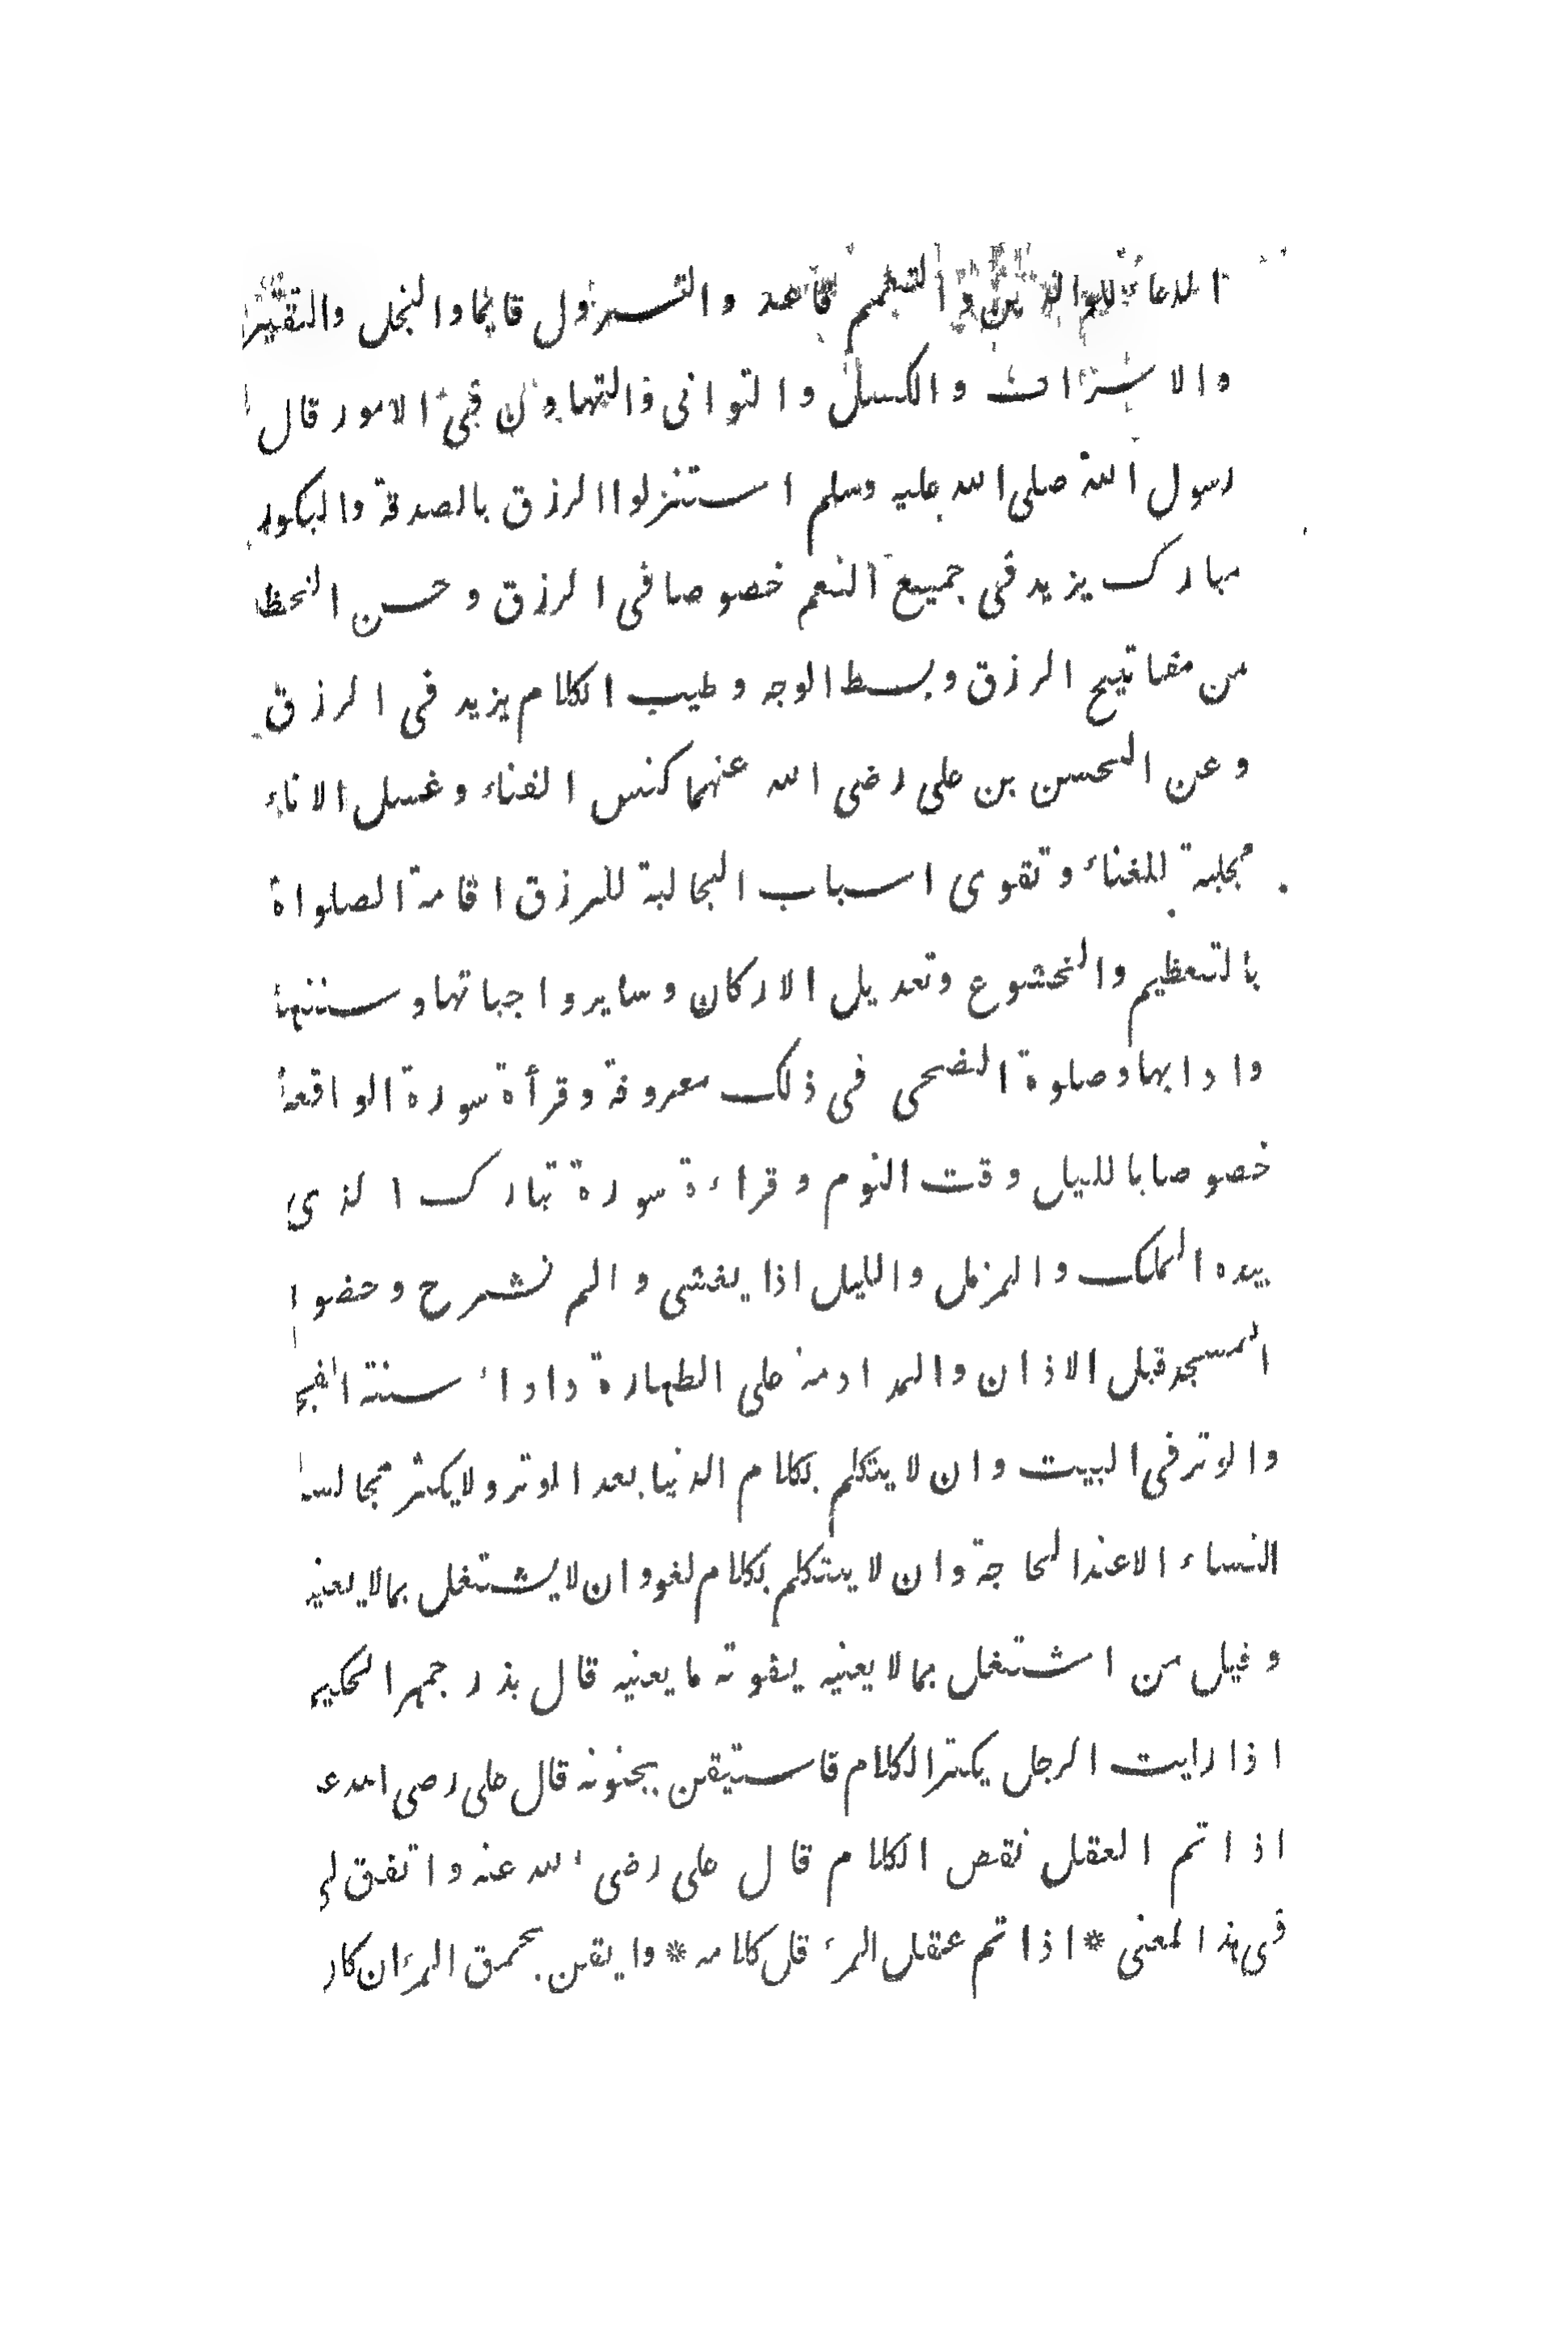 الدعاء للوالدين والتعمم قاعدا والتسرول قايما والبخل والتقتير
والاسراف والكسل والتوانى والتهاون فى الامور قال
رسول الله صلى الله عليه وسلم استنزلوا الرزق بالصدقة والبكور
مبارك يزيد فى جميع النعم خصوصا فى الرزق و حسن الخط
من مفاتيح الرزق وبسط الوجه وطيب الكلام يزيد فى الرزق
وعن الحسن بن على رضى الله عنهما كنس الفناء وغسل الاناء
مجلبة للغناء وتقوى اسباب الجالبة للرزق اقامة الصلواة
بالتعظيم والخشوع وتعديل الاركان وساير واجباتها وسننها
وادابها وصلوة الضحى فى ذلك معروفة وقرأة سورة الواقعة
خصوصا بالليل وقت النوم وقراءة سورة تبارك الذى
بيده الملك والمزمل والليل اذا يغشى والم نشرح وحضو
المسجد قبل الاذان والمداومة على الطهارة واداء سنة الفجر
والوتر فى البيت وان لا يتكلم بكلام الدنيا بعد الوتر ولا يكثر مجالسة
النساء الا عند الحاجة وان لا يتكلم بكلام لغو وان لا يشتغل بما لا يعنيه
وقيل من اشتغل بما لا يعنيه يفوته ما يعنيه قال بذرجمهر الحكيم
اذا رايت الرجل يكثر الكلام فاستيقن بجنونه قال على رضى الله عـ
اذا تم العقل نقص الكلام قال على رضى الله عنه واتفق لى
فى هذا المعنى * اذا تم عقل المرء قل كلامه * وايقن بحمق المرء ان كان